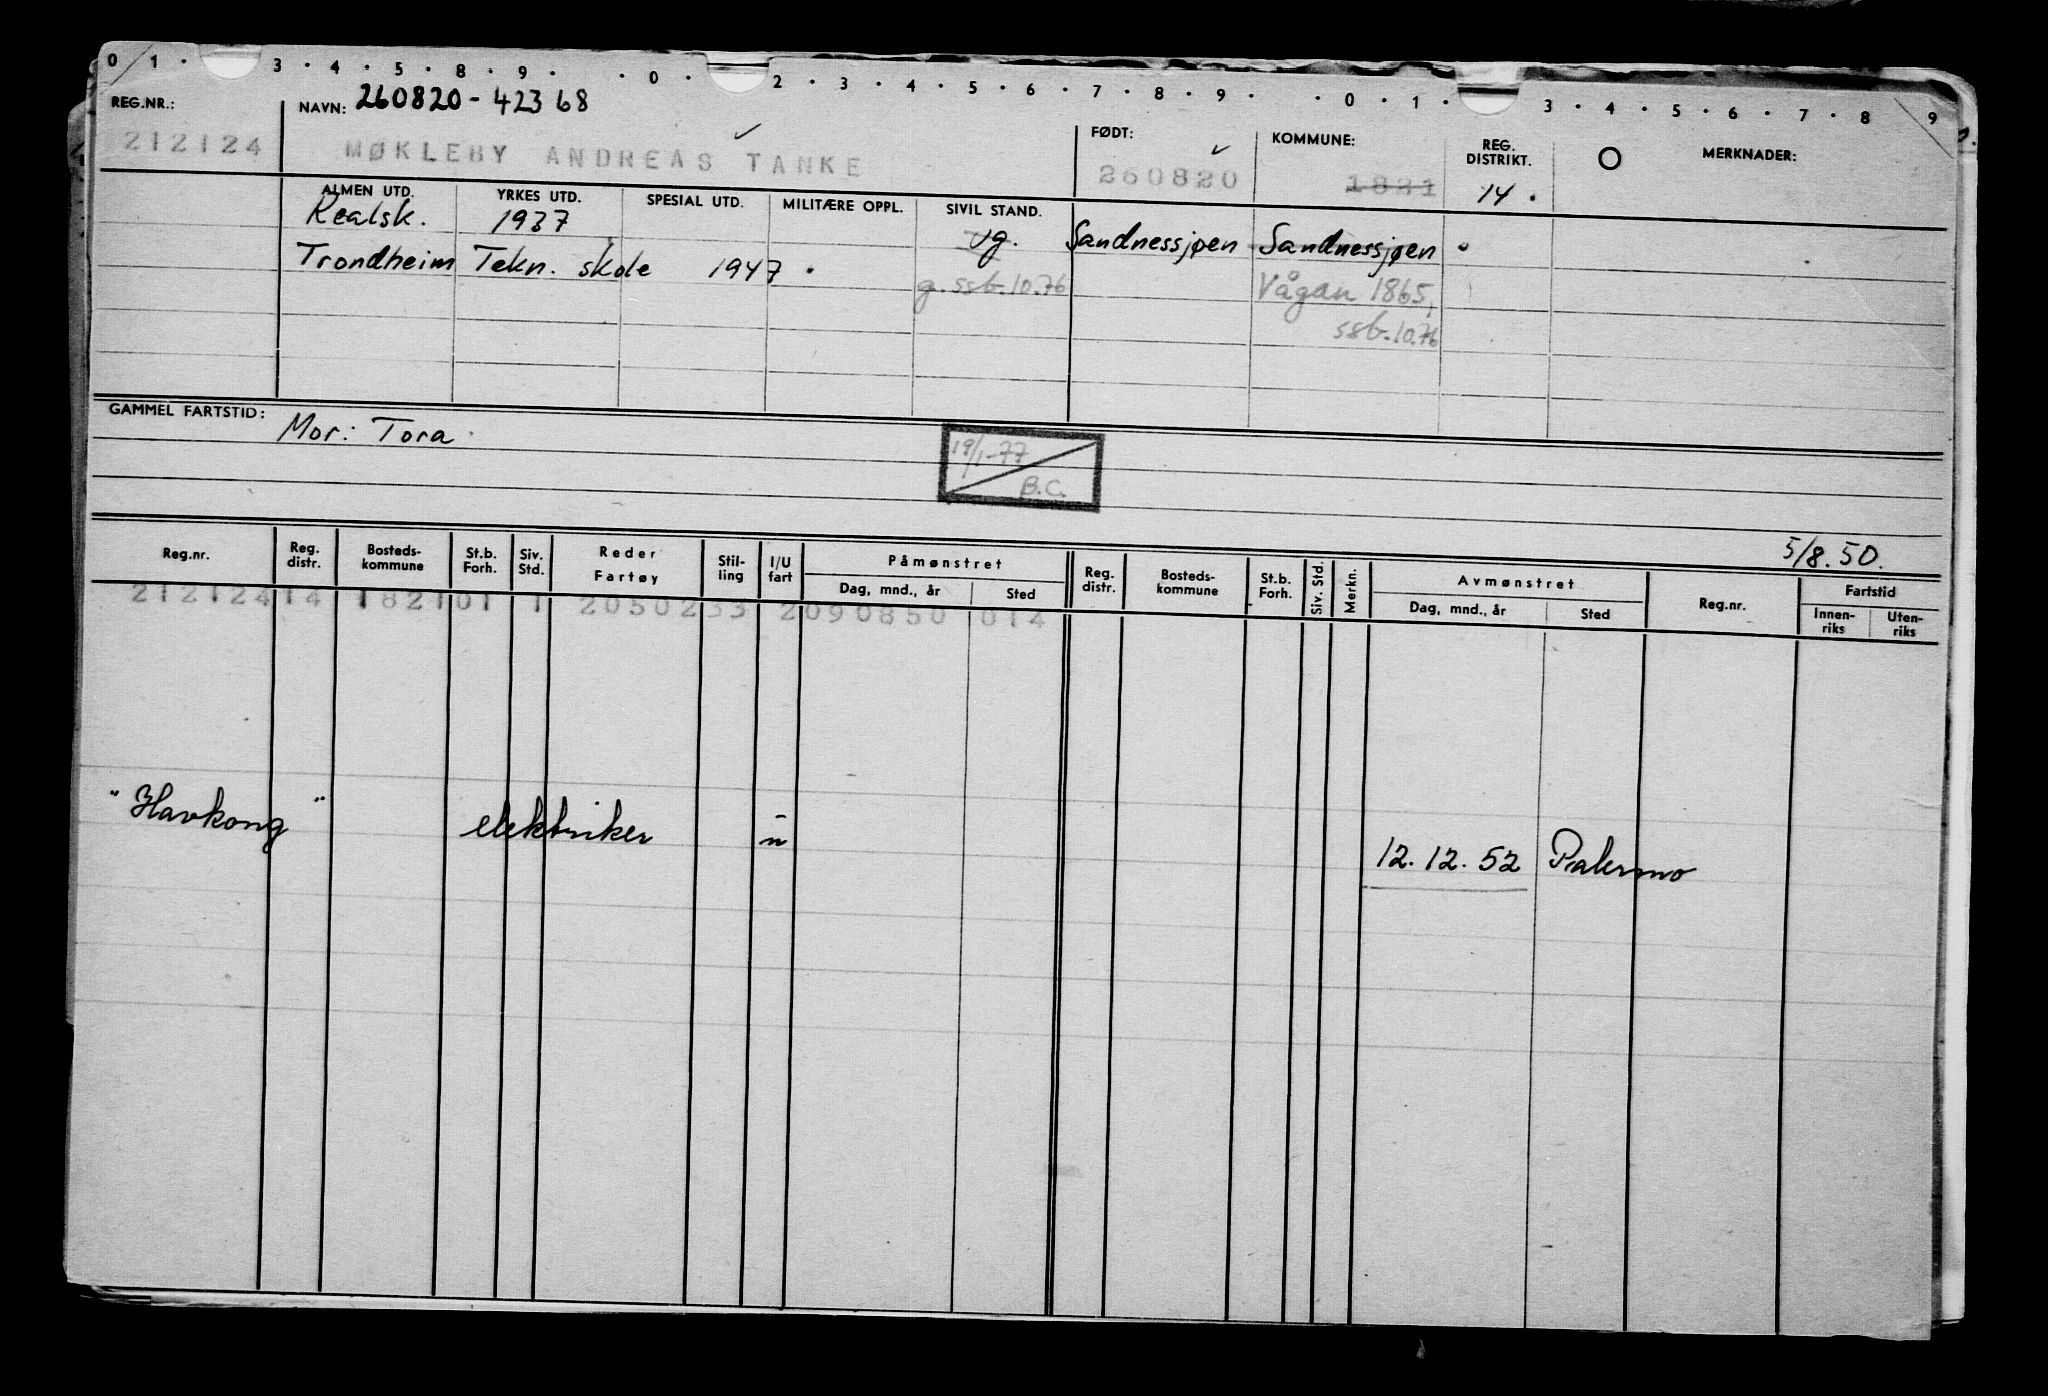 0 1 · 3 · 4 · 5 · 8 · 9 · · 0 · 2 · 3 · 4 · 5 · 6 · 7 · 8 · 9 · · 0 · 1 · 3 · 4 · 5 · 6 · 7 · 8 9
REG.NR.: NAVN: 260820-42368 FØDT: KOMMUNE: REG. DISTRIKT. O MERKNADER:
212124 MØKLEBY ANDREAS TANKE 260820 1821 14.
ALMEN UTD. YRKES UTD. SPESIAL UTD. MILITÆRE OPPL. SIVIL STAND.
Realsk. 1937 ug. Sandnessjøen Sandnessjøen
Trondheim Tekn. skole 1947 . g. ssb. 10.76 Vågan 1865,
ssb. 10.76
GAMMEL FARTSTID: Mor: Tora
19/1-77
B.C.
5/8.50.
Reg.nr. Reg. distr. Bosteds- kommune St.b. Forh. Siv. Std. Reder Fartøy Stil- ling I/U fart Påmønstret Dag, mnd., år Sted Reg. distr. Bosteds- kommune St.b. Forh. Siv. Std. Merkn. Avmønstret Dag, mnd., år Sted Reg.nr. Fartstid Innen- riks Uten- riks
212124 14 182101 1 2050233 2090850 014
"Havkong" elektriker u 12.12.52 Palermo